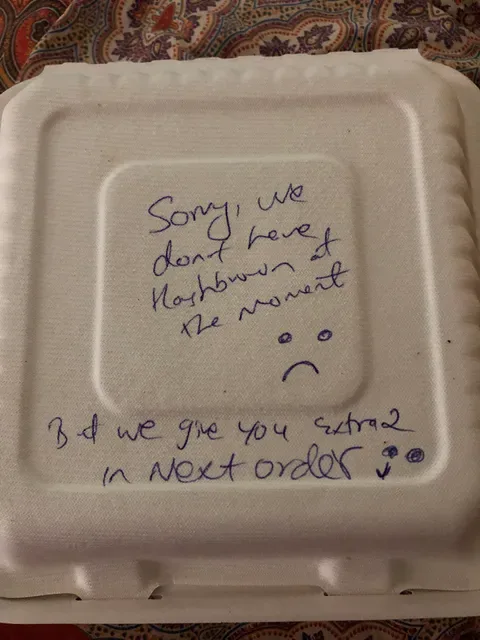 Sorry, we
don't have
Hashbrown at
the moment
But we give you extra 2
in Next order